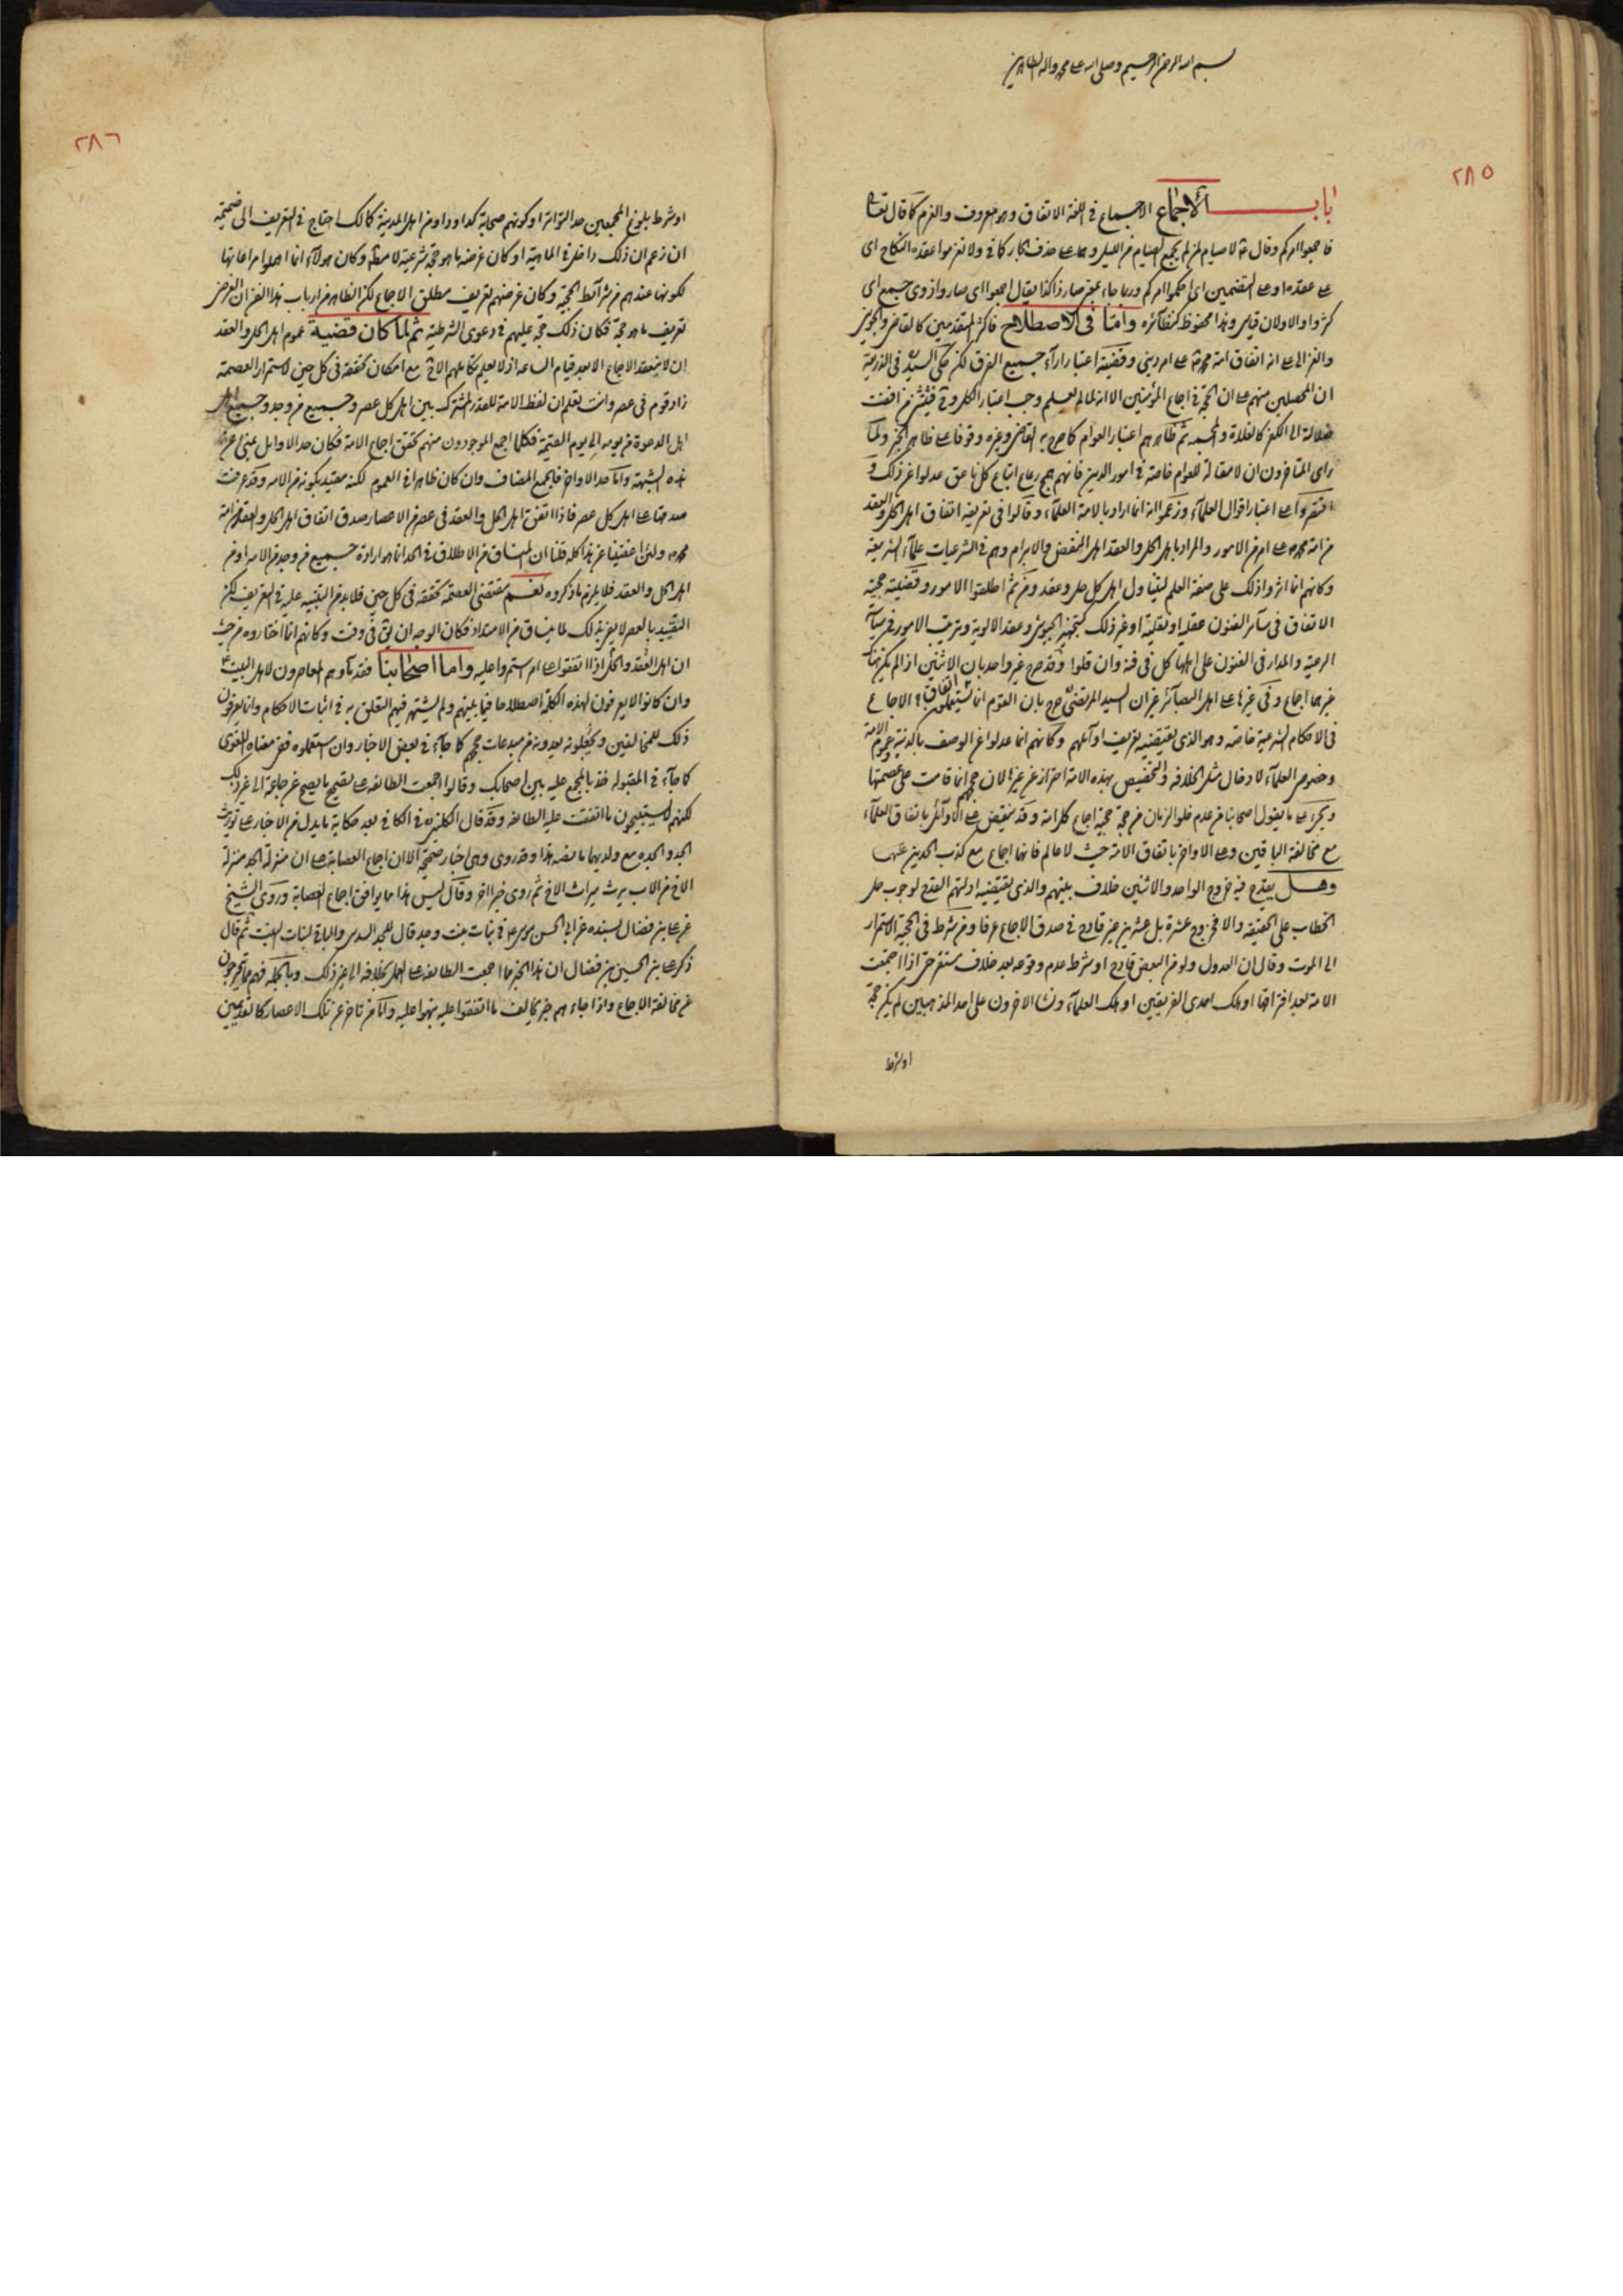 بسم الله الرحمن الرحيم وصلى الله على محمد واله الطاهرين
٢٨٥
باب الاجماع الاجماع في اللغة الاتفاق وهو معروف والعزم كما قال تعالى
فاجمعوا امركم وقال لا صيام لمن لم يجمع الصيام من الليل وهما على حذف الجار كما في ولا تعزموا عقدة النكاح اى
على عقده او على التضمين اى احكموا امركم وربما جاء بمعنى صار ذا كذا يقال اجمعوا اى صاروا ذوى جمع اى
كثروا والاولان قياس وهذا محفوظ كنظائره واما في الاصطلاح فاكثر المتقدمين كالقاضي والجويني
والغزالي على انه اتفاق امة محمد على امر ديني وقضيته اعتبار اراء جميع الفرق لكن حكى السيد في الذريعة
ان المحصلين منهم على ان الحجة في اجماع المؤمنين الا انه لما لم يعلم وجب اعتبار الكل وفيمن افضت
ضلالته الى الكفر كالغلاة والمجسمه ثم ظاهرهم اعتبار العوام كما صرح به القاضي وغيره وقوفا على ظاهر الخبر ولما
راى المتاخرون ان لا مقالة للعوام خاصة في امور الدين فانهم همج رعاع اتباع كل ناعق عدلوا عن ذلك و
اقتصروا على اعتبار اقوال العلماء وزعموا انه انما اراد بالامة العلماء وقالوا في تعريفه اتفاق اهل الحل والعقد
من امة محمد على امر من الامور والمراد باهل الحل والعقد اهل النقض والابرام وهم في الشرعيات علماء الشريعة
وكانهم انما اثروا ذلك على صفة العلم ليتناول اهل كل حل وعقد ومن ثم اطلقوا الامور وقضيته حجية
الاتفاق في سائر الفنون عقلية او نقلية او غير ذلك كتجهيز الجيوش وعقد الالوية وترتيب الامور في سياسة
الرعية والمدار في الفنون على اهلها كل في فنه وان قلوا وقد صرح غير واحد بان الاثنين اذا لم يكن
غيرهما اجماع وفي غيرها على اهل البصائر غير ان السيد المرتضى صرح بان القوم انما يستعملون الاجماع
في الاحكام الشرعية خاصه وهو الذى يقتضيه تعريف اوائلهم وكانهم انما عدلوا عن الوصف بالدينية عموم الامة
وخصوص العلماء لادخال مثل الخلافه والتخصيص بهذه الامة احتراز عن غيرها لان حججهم انما قامت على عصمتها
ويجرى على ما يقول اصحابنا من عدم خلو الزمان من حجة حجية اجماع كل امة وقد ينتقض على الاوائل باتفاق العلماء
مع مخالفة الباقين وعلى الاواخر باتفاق الامة حيث لا عالم فانها اجماع مع كذب الحدين عليهما
وهل يقدح فيه خروج الواحد والاثنين خلاف بينهم والذى يقتضيه ادلتهم القدح لوجوب حمل
الخطاب على الحقيقة والا فخروج عشرة بل عشرين غير قادح في صدق الاجماع عرفا ومن شرط في الحجية الاستمرار
الى الموت وقال ان العدول ولو من البعض قادح او شرط عدم وقوعه بعد خلاف مستقر حتى اذا اجمعت
الامة بعد افتراقها او هلك احدى الفريقين او هلك العلماء ونشا الاخرون على احد المذهبين لم يكن حجة
او شرط
٢٨٦
او شرط بلوغ المجمعين حد التواتر او كونهم صحابة كداود او من اهل المدينة كمالك احتاج في التعريف الى ضميمة
ان زعم ان ذلك داخل في الماهية او كان غرضه ما هو حجة شرعية وكان هولاء انما اهملوا مراعاتها
لكونها عندهم من شرائط الحجية وكان غرضهم تعريف مطلق الاجماع لكن الظاهر من ارباب هذا الفن ان الغرض
تعريف ما هو حجة فكان ذلك حجة عليهم في دعوى الشرطية ثم لما كان قضية عموم اهل الحل والعقد
ان لا ينعقد الاجماع الا بعد قيام الساعة اذ لا يعلم تكاملهم الا مع امكان تحققه في كل حين لاستمرار العصمة
زاد قوم في عصر وانت تعلم ان لفظ الامة للقدر المشترك بين اهل كل عصر وجميع من وجد وجميع اهل
اهل الدعوة من يومه الى يوم القيمة فكلما اجمع الموجودون منهم تحقق اجماع الامة فكان حد الاوايل بمنجى عن
هذه الشبهة واما حد الاواخر فالجمع المضاف وان كان ظاهرا في العموم لكنه مقيد بكونه من الامة وقد عرفت
صدقها على اهل كل عصر فاذا اتفق اهل الحل والعقد في عصر من الاعصار صدق اتفاق اهل الحل والعقد من امة
محمد ولئن اغضينا عن هذا كله قلنا ان المنساق من الاطلاق في الحد انما هو ارادة جميع من وجد من الامة او من
اهل الحل والعقد فلا يلزم ما ذكروه نعم مقتضى العصمة تحققه في كل حين فلا بد من التنبيه عليه في التعريف لكن
التقييد بالعصر لا يفى بذلك لما ينساق من الامتداد فكان الوجه ان يق في وقت وكانهم انما اختاروه من حيث
ان اهل العقد والحل اذا اتفقوا على امر استمروا عليه واما اصحابنا فقدماؤهم المعاصرون لاهل البيت
وان كانوا لا يعرفون لهذه الكلمة اصطلاحا فيما بينهم ولم يشتهر فيهم التعلق به في اثبات الاحكام وانما يعرفون
ذلك للمخالفين ويجعلونه ويعدونه من مبدعاتهم كما جاء في بعض الاخبار وان استعملوه فمن معناه اللغوى
كما جاء في المقبوله خذ بالمجمع عليه بين اصحابك وقالوا اجمعت الطائفه على تصحيح ما يصح عن جماعة الى غير ذلك
لكنهم لا يستبيحون ما اتفقت عليه الطائفه وقد قال الكليني في الكافي بعد حكاية ما يدل من الاخبار على توريث
الجد والجده مع ولديهما ما نصه هذا وقد روى وهى اخبار صحيحة الا ان اجماع العصابة على ان منزلة الجد منزلة
الاخ من الاب يرث ميراث الاخ ثم روى خبرا اخر وقال ليس هذا مما يوافق اجماع العصابة وروى الشيخ
عن على بن فضال بسنده عن ابى الحسن موسى في بنات بنت وجد قال للجد السدس والباقي لبنات البنت ثم قال
ذكر على بن الحسن بن فضال ان هذا الخبر مما اجمعت الطائفه على العمل بخلافه الى غير ذلك وبالجملة فهم يتحرجون
عن مخالفة الاجماع واذا جاءهم خبر يخالف ما اتفقوا عليه نبهوا عليه واما من تاخر عن تلك الاعصار كالقديمين